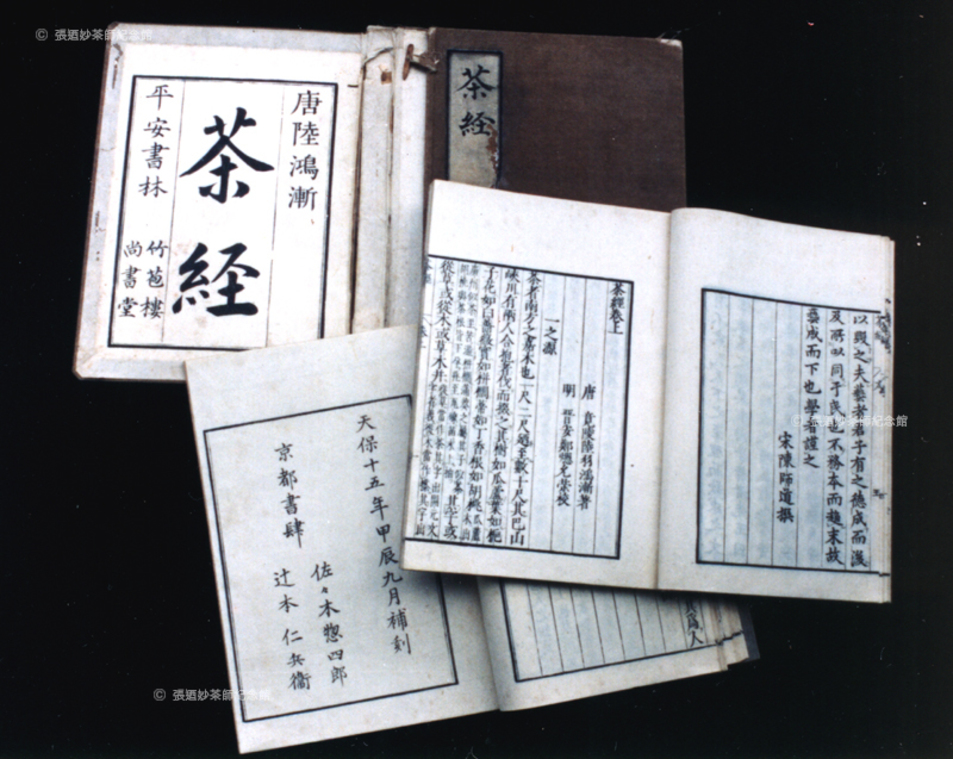 © 張迺妙茶師紀念館
唐陸鴻漸
茶経
平安書林
竹苞樓
尚書堂
茶経
茶經卷上
唐 竟陵陸羽鴻漸著
明 晉安鄭熜允榮校
一之源
茶者南方之嘉木也一尺二尺迺至數十尺其巴山
峽川有兩人合抱者伐而掇之其樹如瓜蘆葉如梔
子花如白薔薇實如栟櫚蒂如丁香根如胡桃
其字或
從草或從木或草木并
以毀之夫藝者君子有之德成而後
及所以同于民也不務本而趨末故
藝成而下也學者謹之
宋陳師道撰
© 張迺妙茶師紀念館
天保十五年甲辰九月補刻
京都書肆
佐々木惣四郎
辻本仁兵衞
民爲人
© 張迺妙茶師紀念館